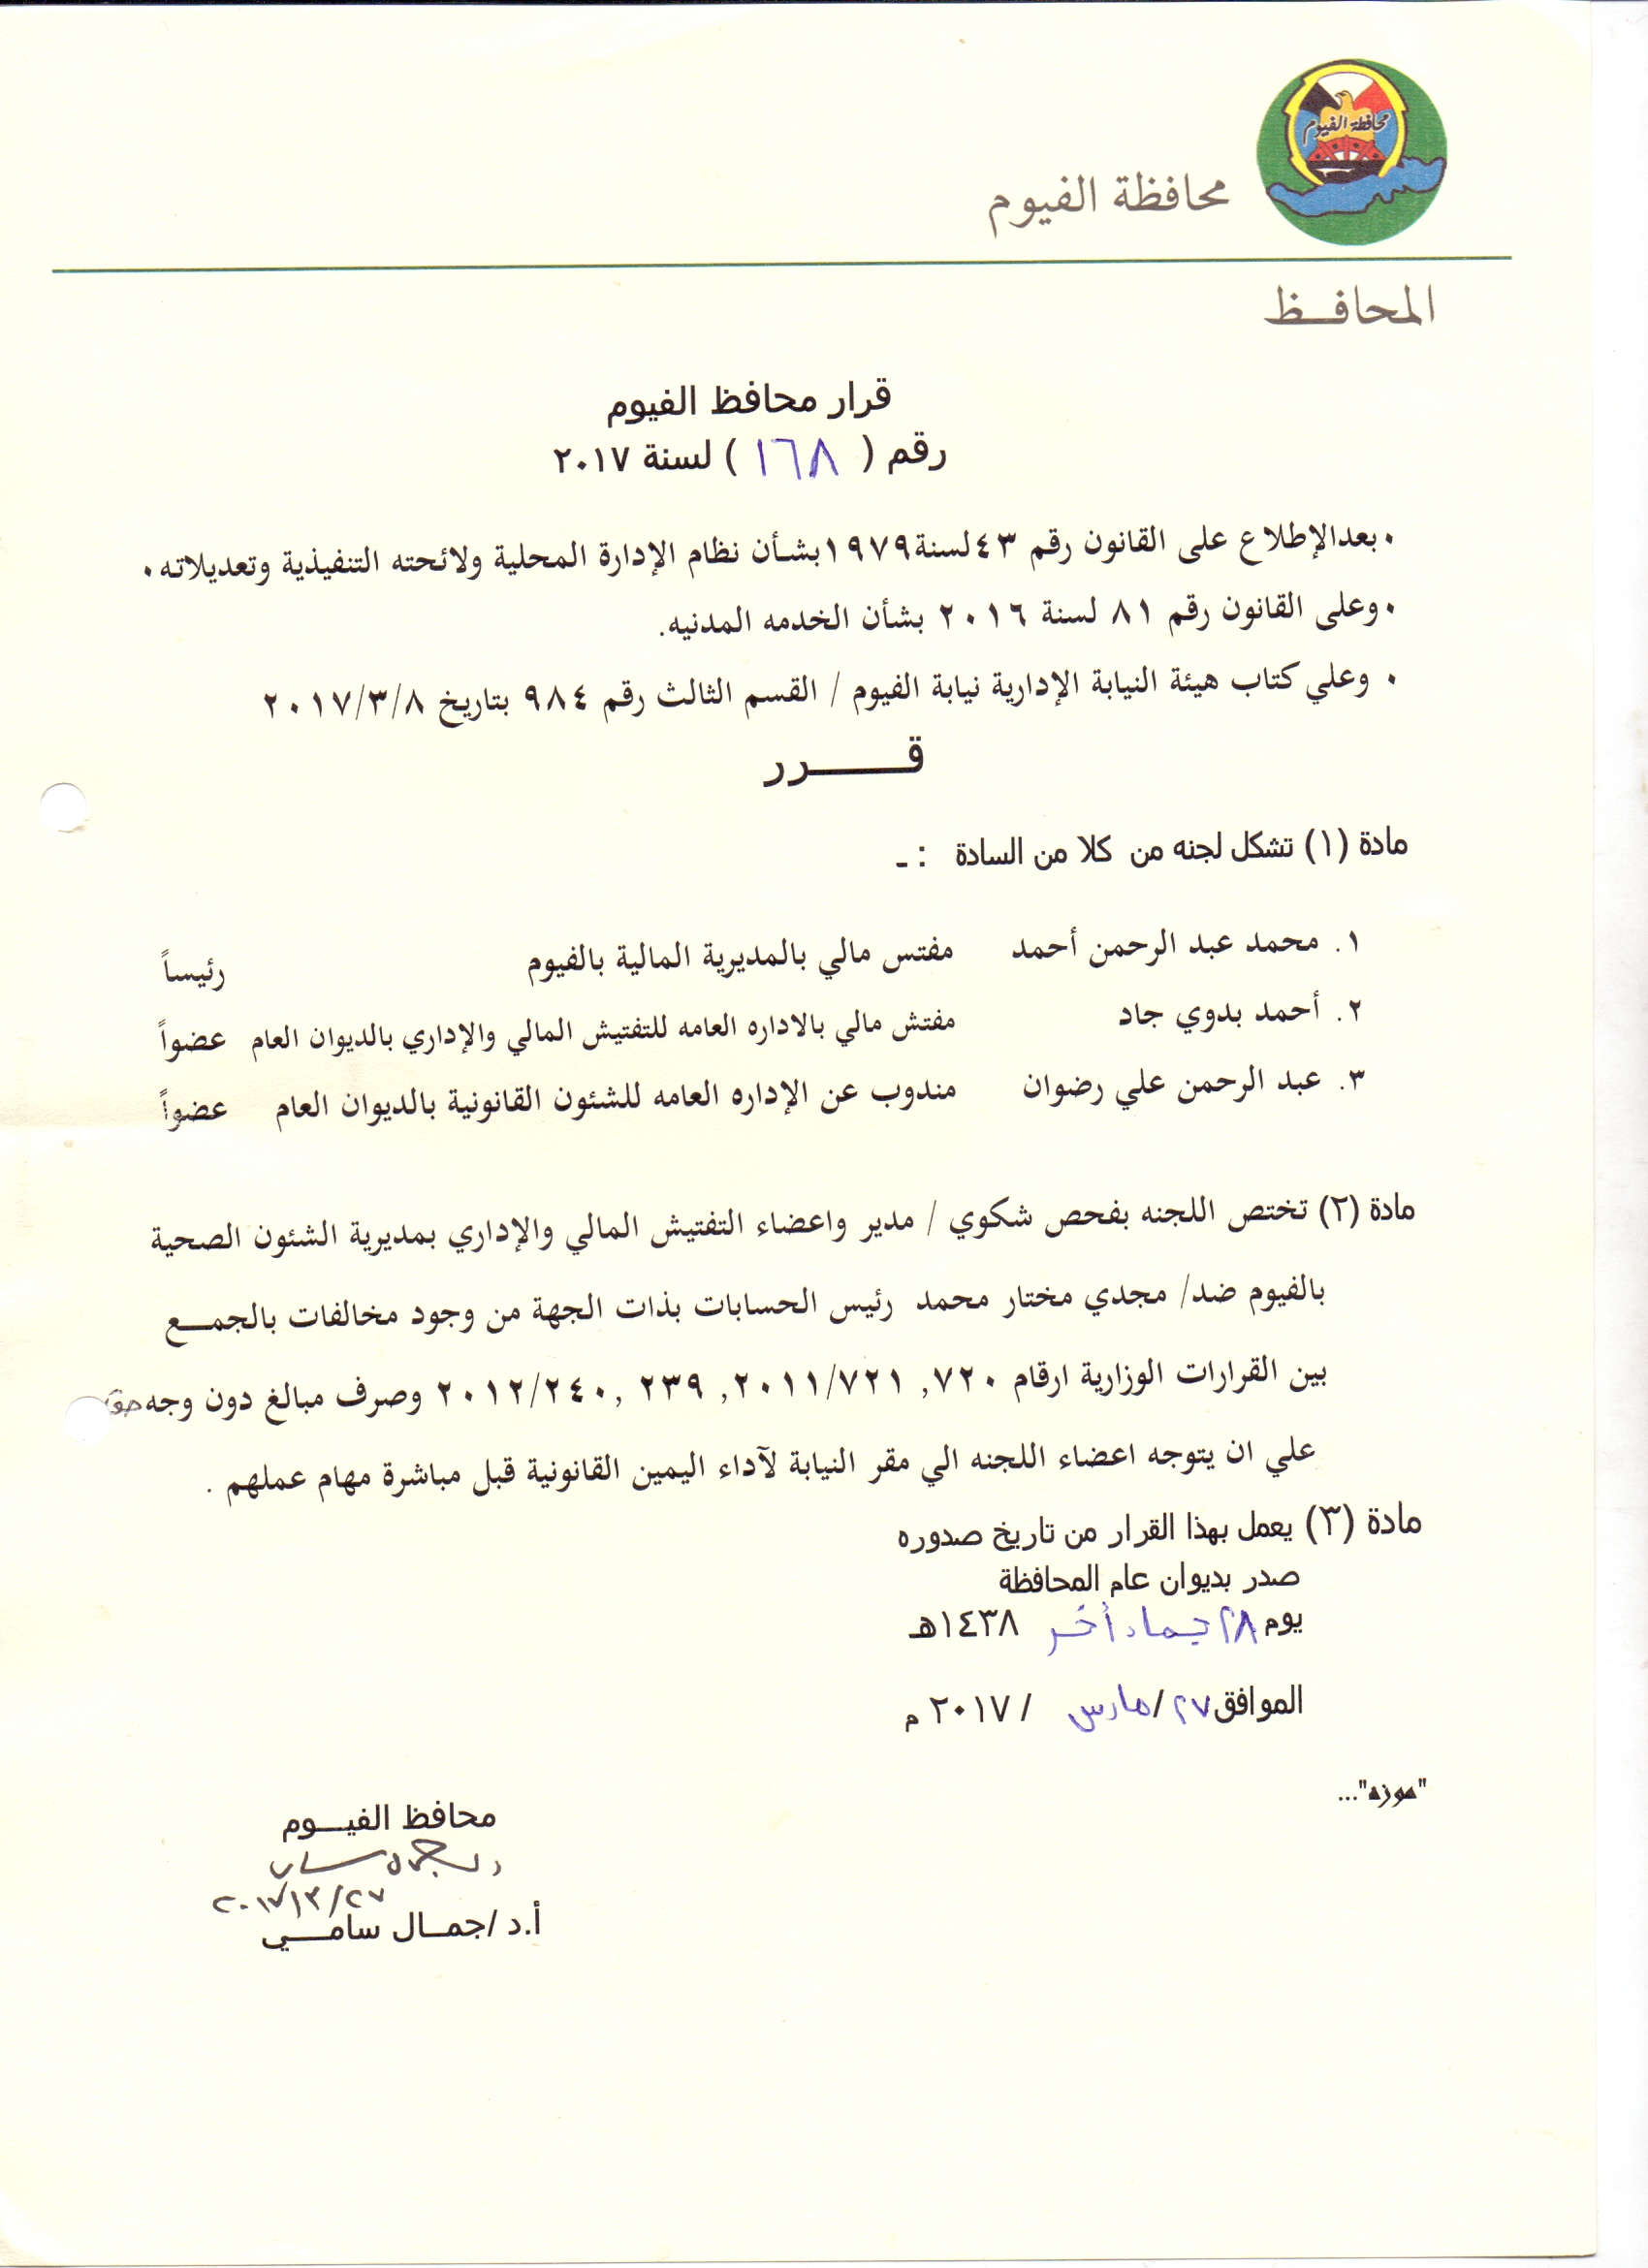 محافظة الفيوم
محافظة الفيوم
المحافـــظ
قرار محافظ الفيوم
رقم ( ١٦٨ ) لسنة ٢٠١٧
• بعدالإطلاع على القانون رقم ٤٣لسنة١٩٧٩بشأن نظام الإدارة المحلية ولائحته التنفيذية وتعديلاته•
• وعلى القانون رقم ٨١ لسنة ٢٠١٦ بشأن الخدمه المدنيه.
• وعلي كتاب هيئة النيابة الإدارية نيابة الفيوم / القسم الثالث رقم ٩٨٤ بتاريخ ٢٠١٧/٣/٨
قـــــــرر
مادة (١) تشكل لجنه من كلا من السادة : ـ
١. محمد عبد الرحمن أحمد مفتس مالي بالمديرية المالية بالفيوم رئيساً
٢. أحمد بدوي جاد مفتش مالي بالاداره العامه للتفتيش المالي والإداري بالديوان العام عضواً
٣. عبد الرحمن علي رضوان مندوب عن الإداره العامه للشئون القانونية بالديوان العام عضواً
مادة (٢) تختص اللجنه بفحص شكوي / مدير واعضاء التفتيش المالي والإداري بمديرية الشئون الصحية
بالفيوم ضد/ مجدي مختار محمد رئيس الحسابات بذات الجهة من وجود مخالفات بالجمـــع
بين القرارات الوزارية ارقام ٧٢٠, ٢٠١١/٧٢١, ٢٣٩ ,٢٠١٢/٢٤٠ وصرف مبالغ دون وجه حق
علي ان يتوجه اعضاء اللجنه الي مقر النيابة لآداء اليمين القانونية قبل مباشرة مهام عملهم .
مادة (٣) يعمل بهذا القرار من تاريخ صدوره
صدر بديوان عام المحافظة
يوم ٢٨ جماد أخر ١٤٣٨هـ
الموافق ٢٧/ مارس / ٢٠١٧ م
"موزه"...
محافظ الفيـــوم
٢٠١٧/٣/٢٧
أ.د /جمـــال سامـــــي